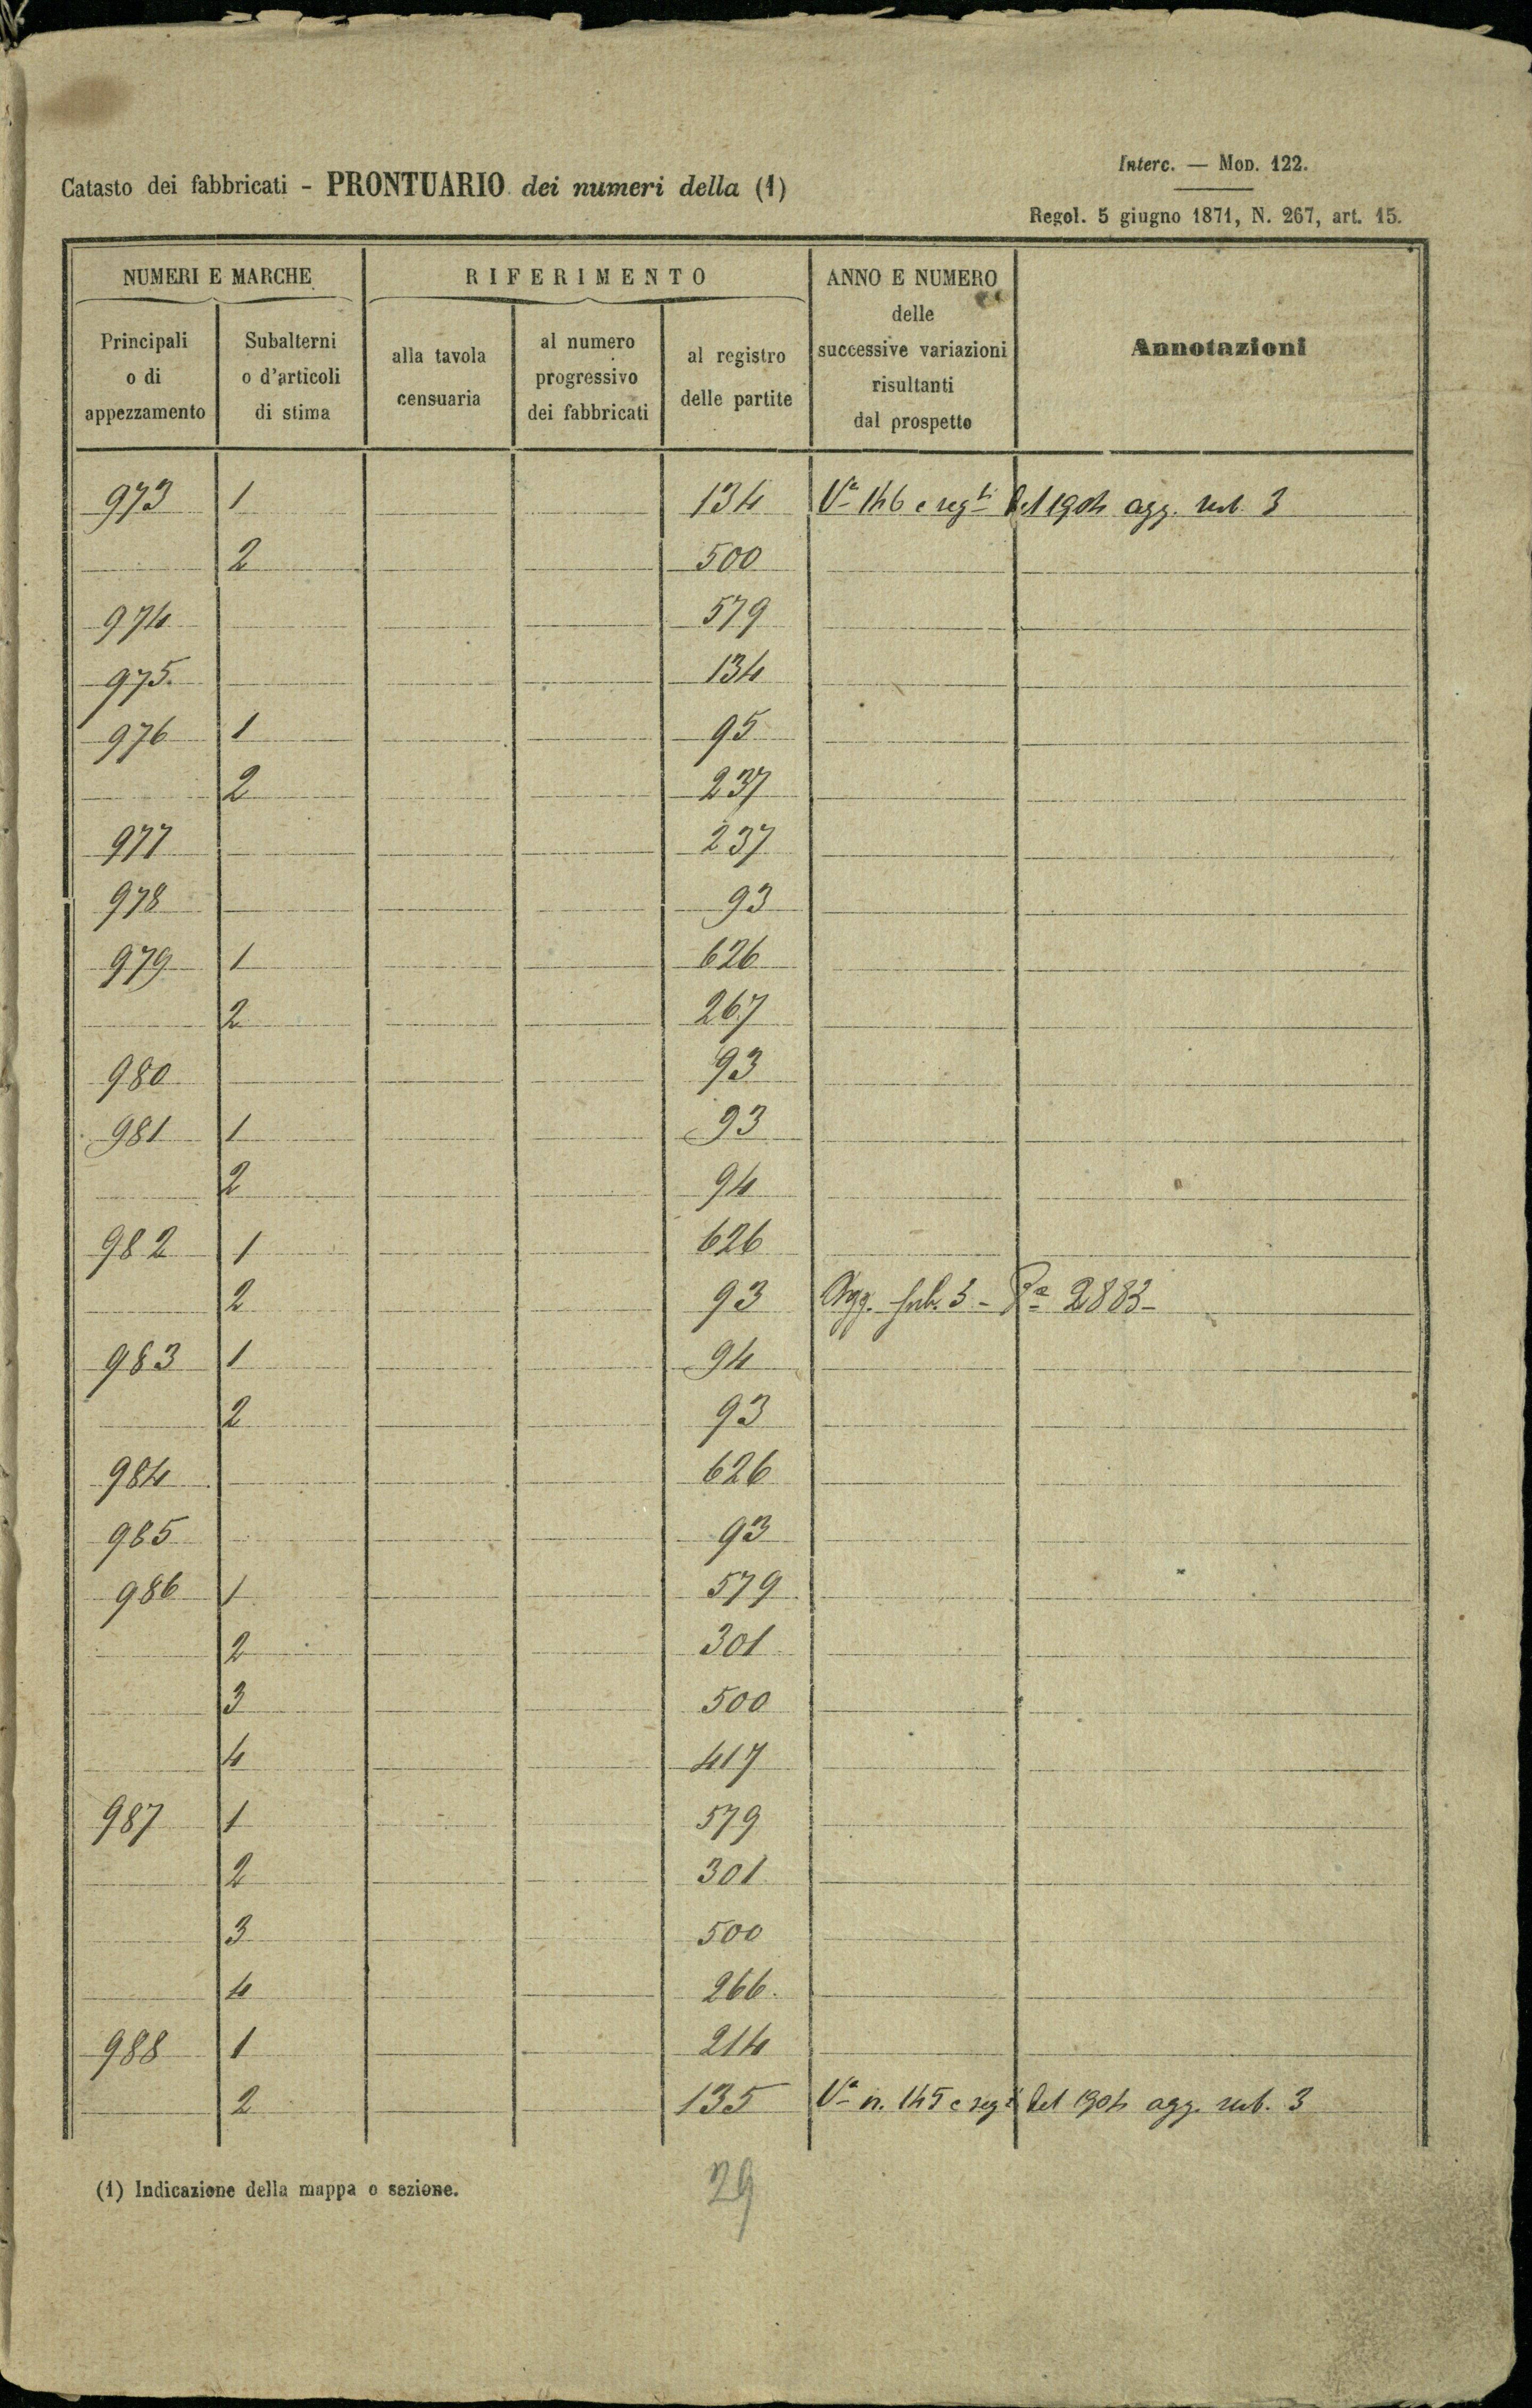 Interc. — Mod. 122.
Catasto dei fabbricati - PRONTUARIO dei numeri della (1)
Regol. 5 giugno 1871, N. 267, art. 15.
NUMERI E MARCHE RIFERIMENTO ANNO E NUMERO delle successive variazioni risultanti dal prospetto Annotazioni
Principali o di appezzamento Subalterni o d'articoli di stima alla tavola censuaria al numero progressivo dei fabbricati al registro delle partite
973 1 134 Va 146 e segti del 1904 agg. sub. 3
2 500
974 579
975. 134
976 1 95
2 237
977 237
978 93
979 1 626
2 267
980 93
981 1 93
2 94
982 1 626
2 93 Agg. sub. 3 - Pa 2883-
983 1 94
2 93
984 626
985 93
986 1 579
2 301
3 500
4 417
987 1 579
2 301
3 500
4 266.
988 1 214
2 135 Va n. 145 e segti del 1904 agg. sub. 3
(1) Indicazione della mappa o sezione.
29